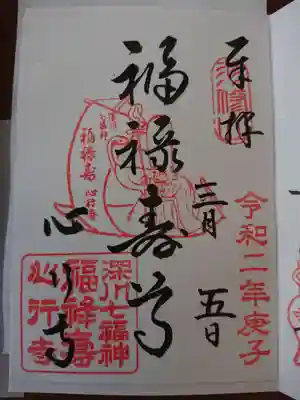 奉拝
三月 五日
令和二年庚子
福禄寿尊
心行寺
福禄寿
心行寺
深川七福神
福禄寿
心行寺